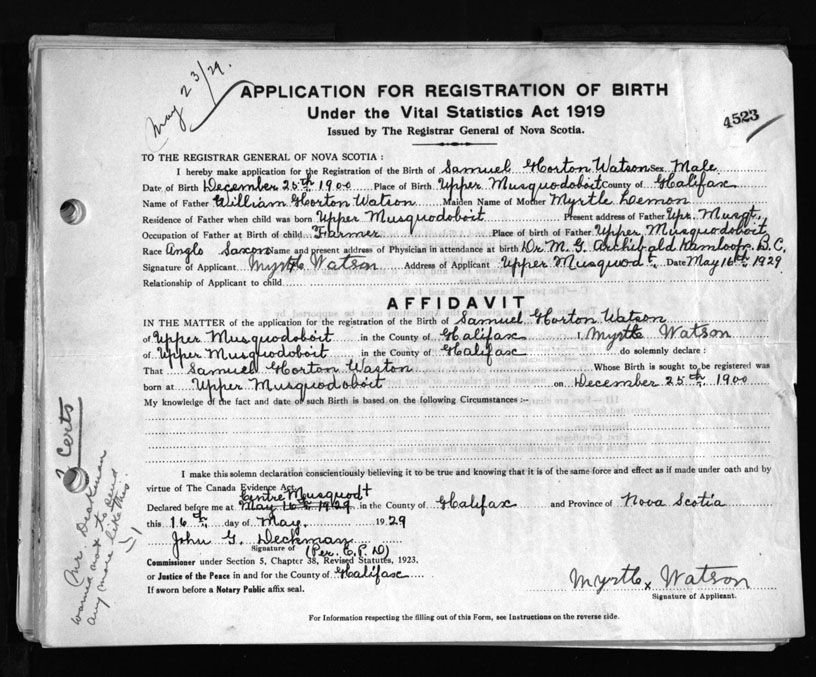 May 23/29.
APPLICATION FOR REGISTRATION OF BIRTH
Under the Vital Statistics Act 1919
4523
Issued by The Registrar General of Nova Scotia.
TO THE REGISTRAR GENERAL OF NOVA SCOTIA :
I hereby make application for the Registration of the Birth of Samuel Horton Watson Sex Male
Date of Birth December 25th 1900 Place of Birth Upper Musquodoboit County of Halifax
Name of Father William Horton Watson Maiden Name of Mother Myrtle
Residence of Father when child was born Upper Musquodoboit Present address of Father Upr. Musqt.,
Occupation of Father at Birth of child Farmer Place of birth of Father Upper Musquodoboit
Race Anglo Saxon Name and present address of Physician in attendance at birth Dr. M. G. Archibald Kamloops B.C.
Signature of Applicant Myrtle Watson Address of Applicant Upper Musquodt. Date May 16th 1929
Relationship of Applicant to child
AFFIDAVIT
IN THE MATTER of the application for the registration of the Birth of Samuel Horton Watson
of Upper Musquodoboit in the County of Halifax I, Myrtle Watson
of Upper Musquodoboit in the County of Halifax do solemnly declare :
That Samuel Horton Waston Whose Birth is sought to be registered was
born at Upper Musquodoboit on December 25th 1900
My knowledge of the fact and date of such Birth is based on the following Circumstances :-
I make this solemn declaration conscientiously believing it to be true and knowing that it is of the same force and effect as if made under oath and by
virtue of The Canada Evidence Act.
Centre Musquodt
Declared before me at May 16th 1929 in the County of Halifax and Province of Nova Scotia
this 16th day of May 1929
John G. Deckman
Signature of (Per. E. P. D)
Commissioner under Section 5, Chapter 38, Revised Statutes, 1923.
or Justice of the Peace in and for the County of Halifax
If sworn before a Notary Public affix seal.
Myrtle x Watson
Signature of Applicant.
For Information respecting the filling out of this Form, see Instructions on the reverse side.
2 Certs
Mr. Deckman
warned not to send
any more like this.